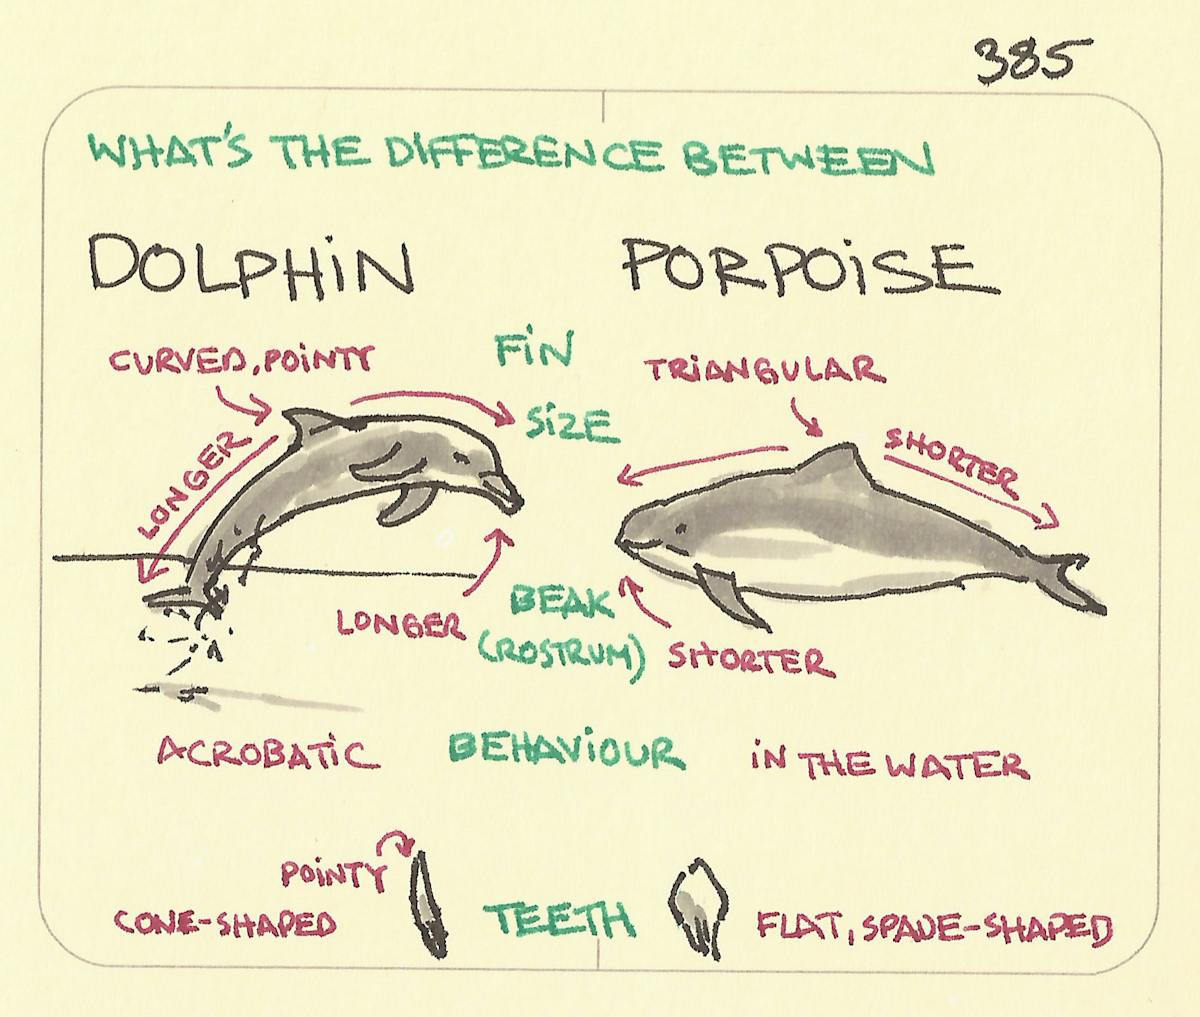 385
WHAT'S THE DIFFERENCE BETWEEN
DOLPHIN
PORPOISE
FIN
CURVED, POINTY
TRIANGULAR
SIZE
LONGER
SHORTER
BEAK
(ROSTRUM)
LONGER
SHORTER
ACROBATIC
BEHAVIOUR
IN THE WATER
POINTY
CONE-SHAPED
TEETH
FLAT, SPADE-SHAPED